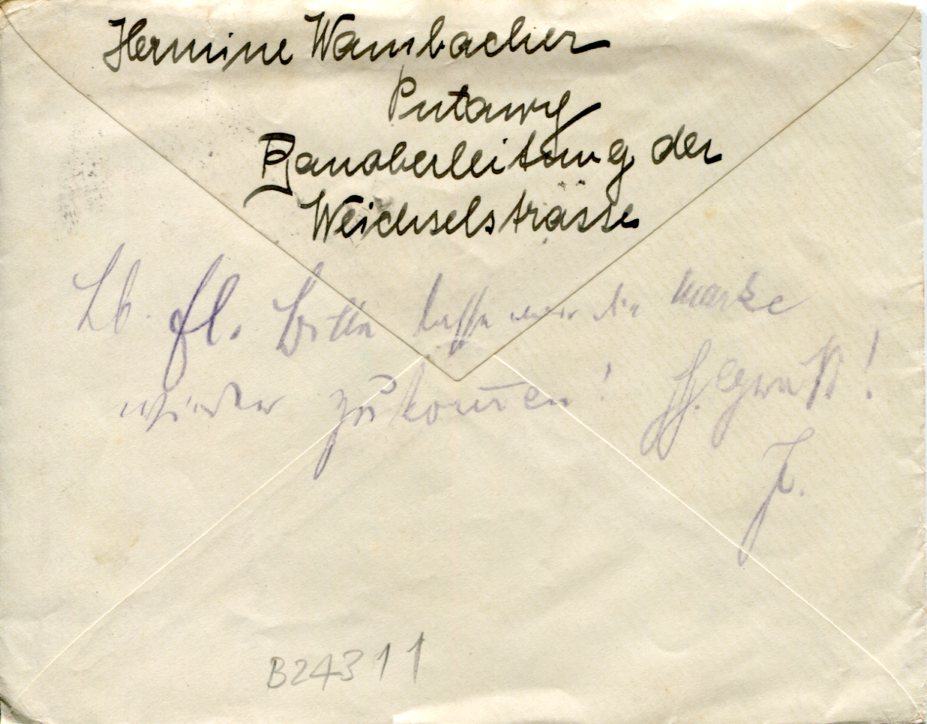 Hermine Wambacher
Putawy
Bauoberleitung der
Weichselstrasse
Lb. Fl. Bitte lasse mir die Marke
wieder zukom̅en!
B24311